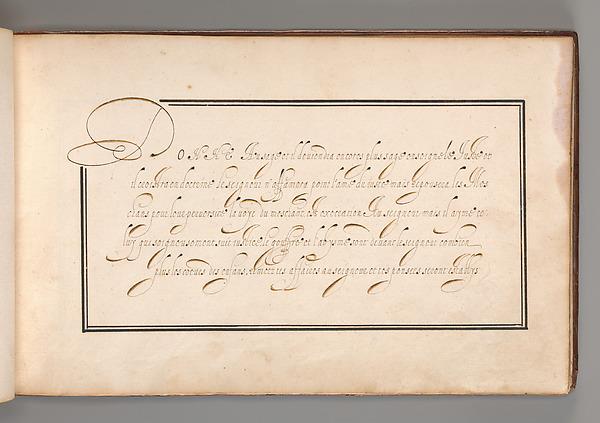 DONNE Au sage et il deviendra encores plus sage enseigne le Juste et
il croistra en doctrine le seigneur n'affamera point l'ame du juste mais repoussera les Mes
chans pour leur perversité la voye du meschant est execration Au seigneur mais il ayme ce
luy qui soigneusement suit justice le gouffre et l'abysme sont devant le seigneur combien
plus les coeurs des enfans, remets tes affaires au seigneur et tes pensees seront establys